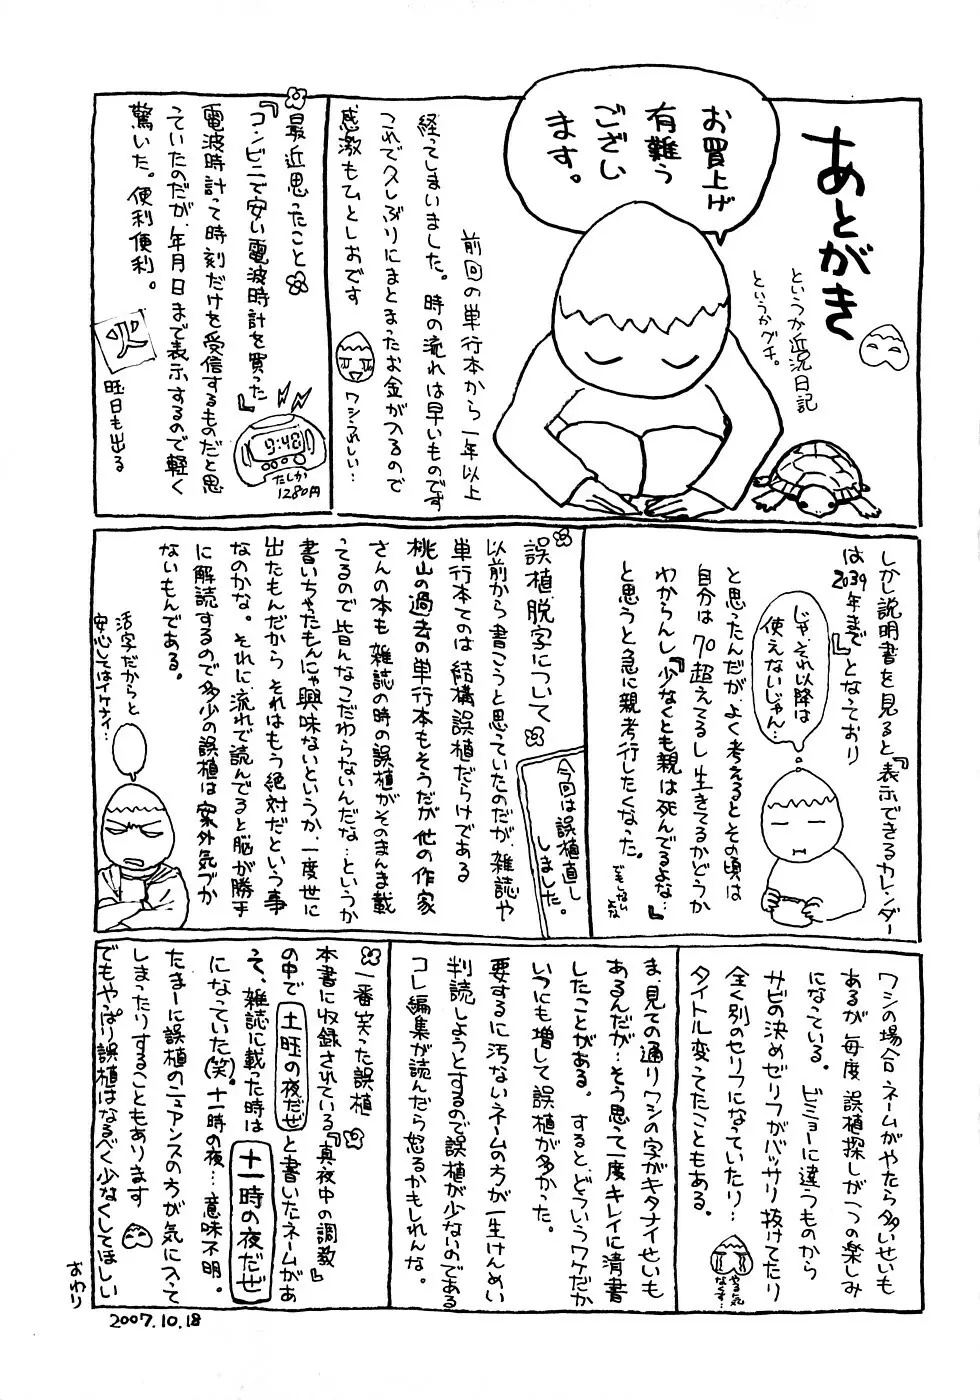 あとがき
というか近況日記
というかグチ。
お買上げ
有難う
ござい
ます。
前回の単行本から一年以上
経ってしまいました。時の流れは早いものです
これで久しぶりにまとまったお金が入るので
感激もひとしおです
ワシうれしい…
最近思ったこと
『コンビニで安い電波時計を買った』
電波時計って時刻だけを受信するものだと思
っていたのだが、年月日まで表示するので軽く
驚いた。便利便利。
9:48
たしか
1280円
火
曜日も出る
しかし説明書を見ると『表示できるカレンダー
は2039年まで』となっており
じゃ、それ以降は
使えないじゃん…
と思ったんだが、よく考えるとその頃は
自分は70超えてるし生きてるかどうか
わからんし『少なくとも親は死んでるよな』
と思うと急に親孝行したくなった。
誤植脱字について
今回は誤植直し
しました。
以前から書こうと思っていたのだが、雑誌や
単行本てのは結構誤植だらけである
桃山の過去の単行本もそうだが他の作家
さんの本も雑誌の時の誤植がそのまんま載
ってるので皆んなこだわらないんだな…というか
書いちゃたもんにゃ興味ないというか、一度世に
出たもんだからそれはもう絶対だという事
なのかな。それに流れで読んでると脳が勝手
に解読するので多少の誤植は案外気づか
ないもんである。
活字だからと
安心してはイケナイ…
ワシの場合ネームがやたら多いせいも
あるが毎度誤植探しが一つの楽しみ
になっている。ビミョーに違うものから
サビの決めゼリフがバッサリ抜けてたり
全く別のセリフになっていたり…
タイトル変ってたこともある。
やる気
なくす…
ま、見ての通りワシの字がキタナイせいも
あるんだが…そう思って一度キレイに清書
したことがある。すると、どういうワケだか
いつにも増して誤植が多かった。
要するに汚ないネームの方が一生けんめい
判読しようとするので誤植が少ないのである
コレ編集が読んだら怒るかもしれんな。
一番笑った誤植
本書に収録されている『真夜中の調教』
の中で土曜の夜だぜと書いたネームがあ
って、雑誌に載った時は十一時の夜だぜ
になっていた(笑)。十一時の夜…意味不明。
たまーに誤植のニュアンスの方が気に入って
しまったりすることもあります
でもやっぱり誤植はなるべく少なくしてほしい
おわり
2007.10.18